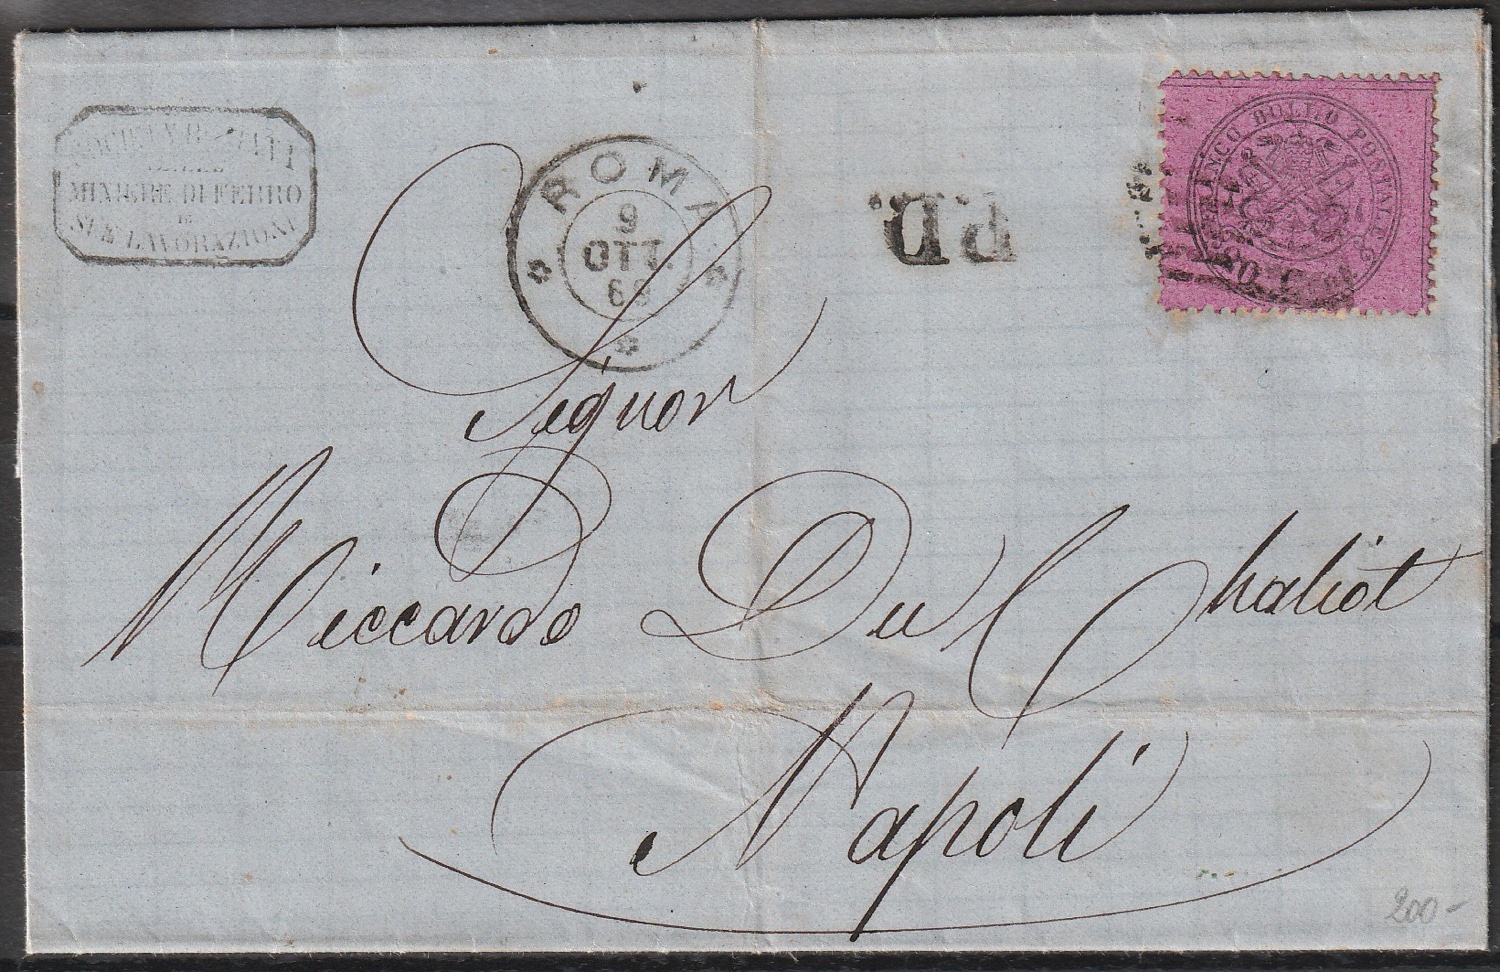 MINIERE DI FERRO
E
SUE LAVORAZIONI
ROMA
9
OTT.
P.D.
FRANCO BOLLO POSTALE
Signor
Riccardo Du Chaliot
Napoli
200-